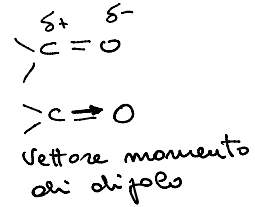 δ+ δ-
C=O
C=O
Vettore momento
di dipolo